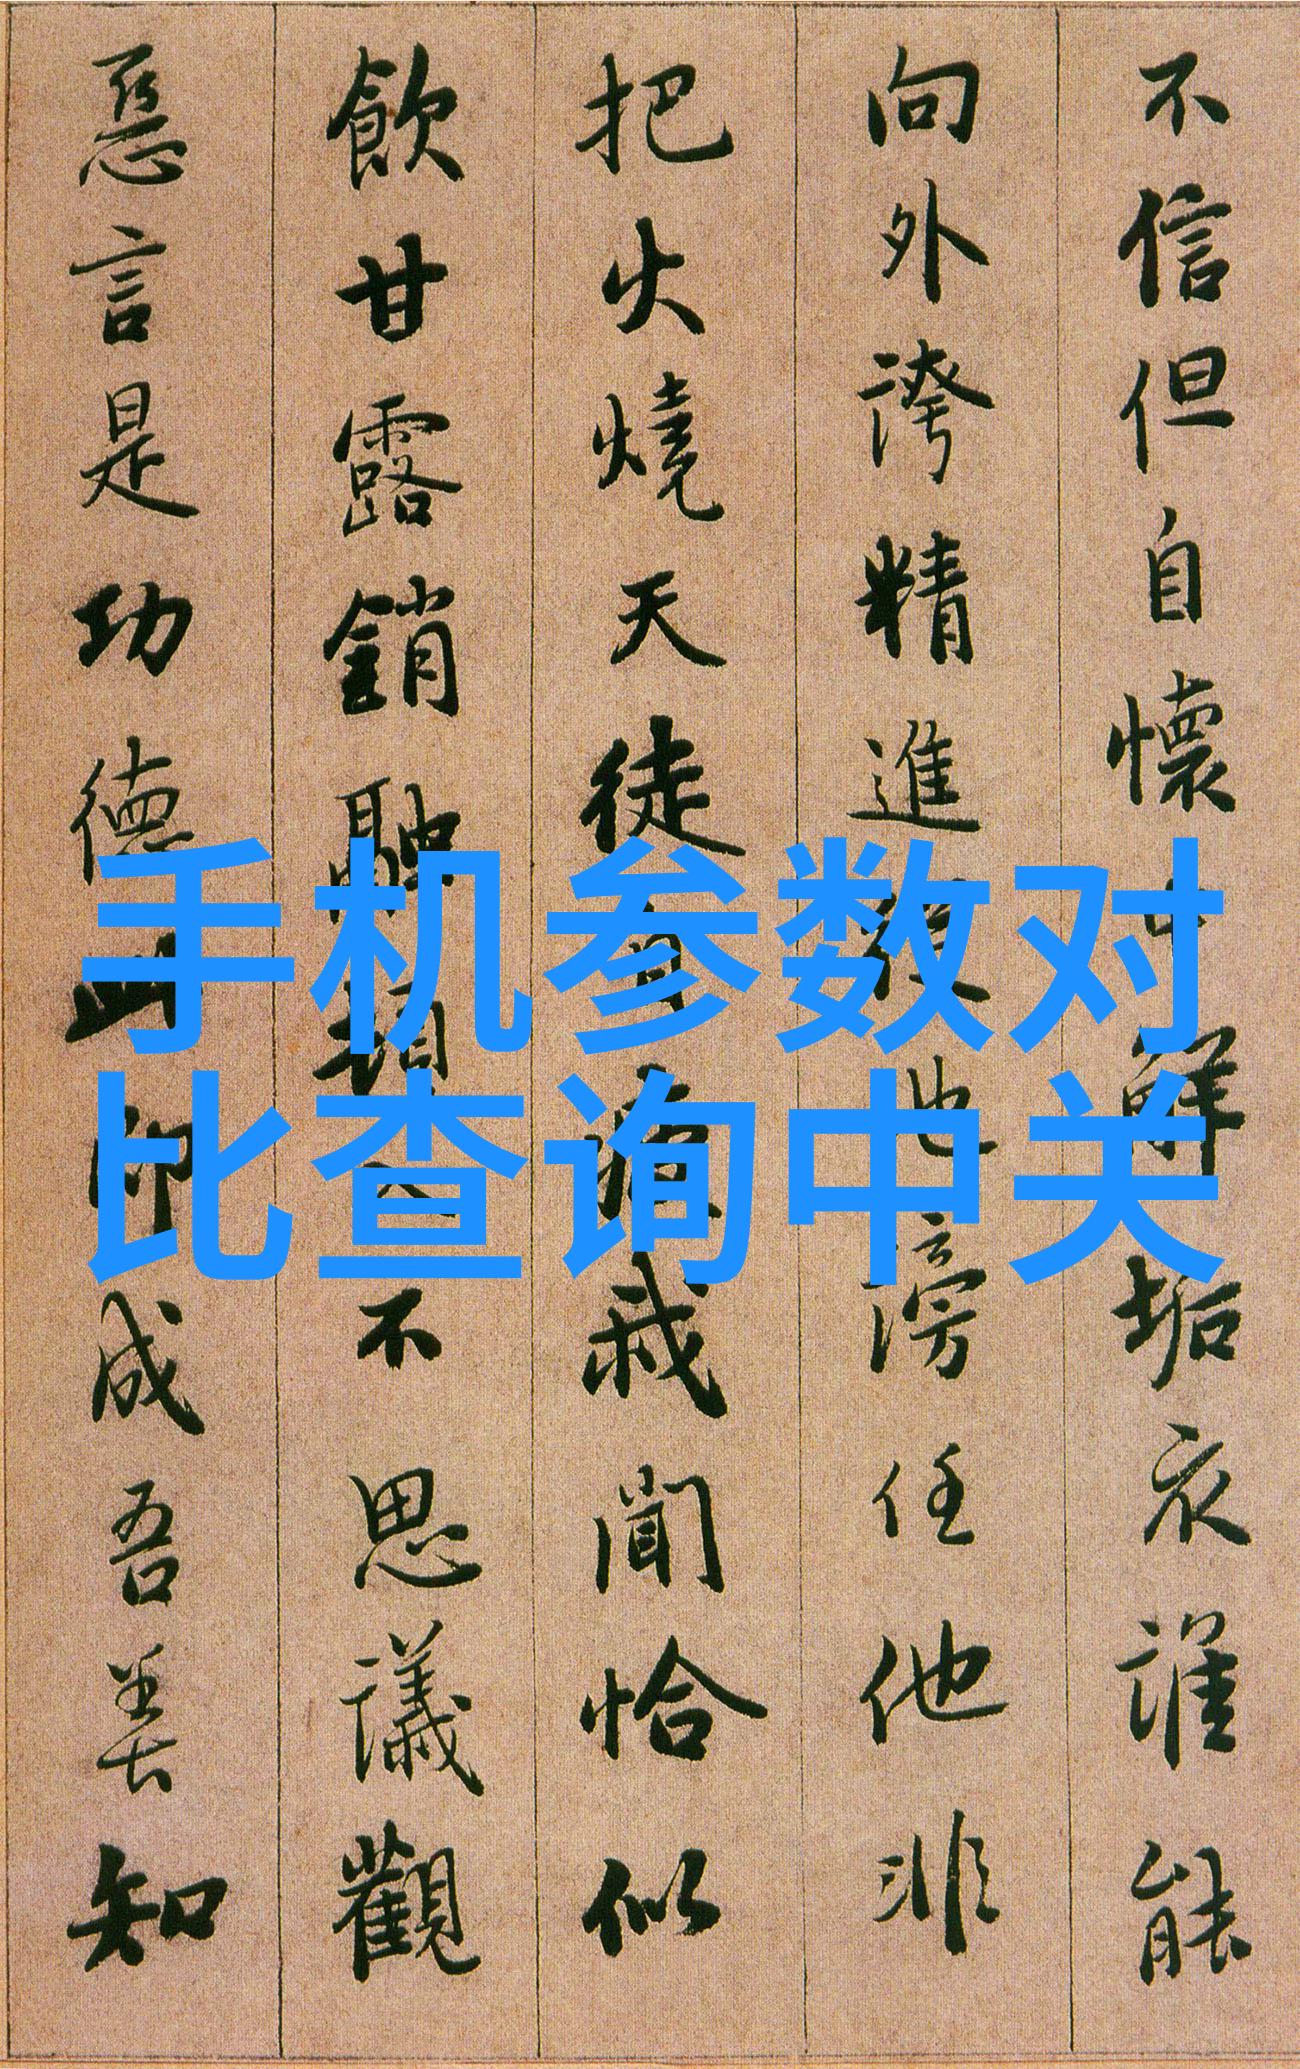 手机参数对
比查询中关
不信但自懷中解垢衣誰能
向外誇精進從他謗任他非
把火燒天徒自疲我聞恰似
飲甘露銷融頓入不思議觀
惡言是功德此即成吾善知